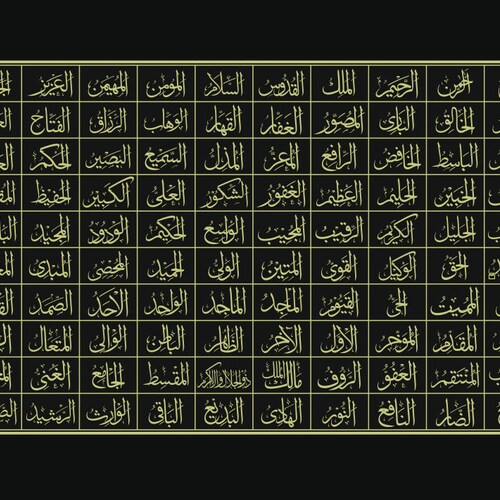 الرحمن الرحيم الملك القدوس السلام المؤمن المهيمن العزيز
الخالق البارئ المصور الغفار القهار الوهاب الرزاق الفتاح
الباسط الخافض الرافع المعز المذل السميع البصير الحكم
الخبير الحليم العظيم الغفور الشكور العلي الكبير الحفيظ
الجليل الكريم الرقيب المجيب الواسع الحكيم الودود المجيد
الحق الوكيل القوي المتين الولي الحميد المحصي المبدئ
المميت الحي القيوم الماجد الماجد الواحد الأحد الصمد
المقدم المؤخر الأول الآخر الظاهر الباطن الوالي المتعال
المنتقم العفو الرؤوف مالك الملك ذو الجلال والإكرام المقسط الجامع الغني
الضار النافع النور الهادي البديع الباقي الوارث الرشيد